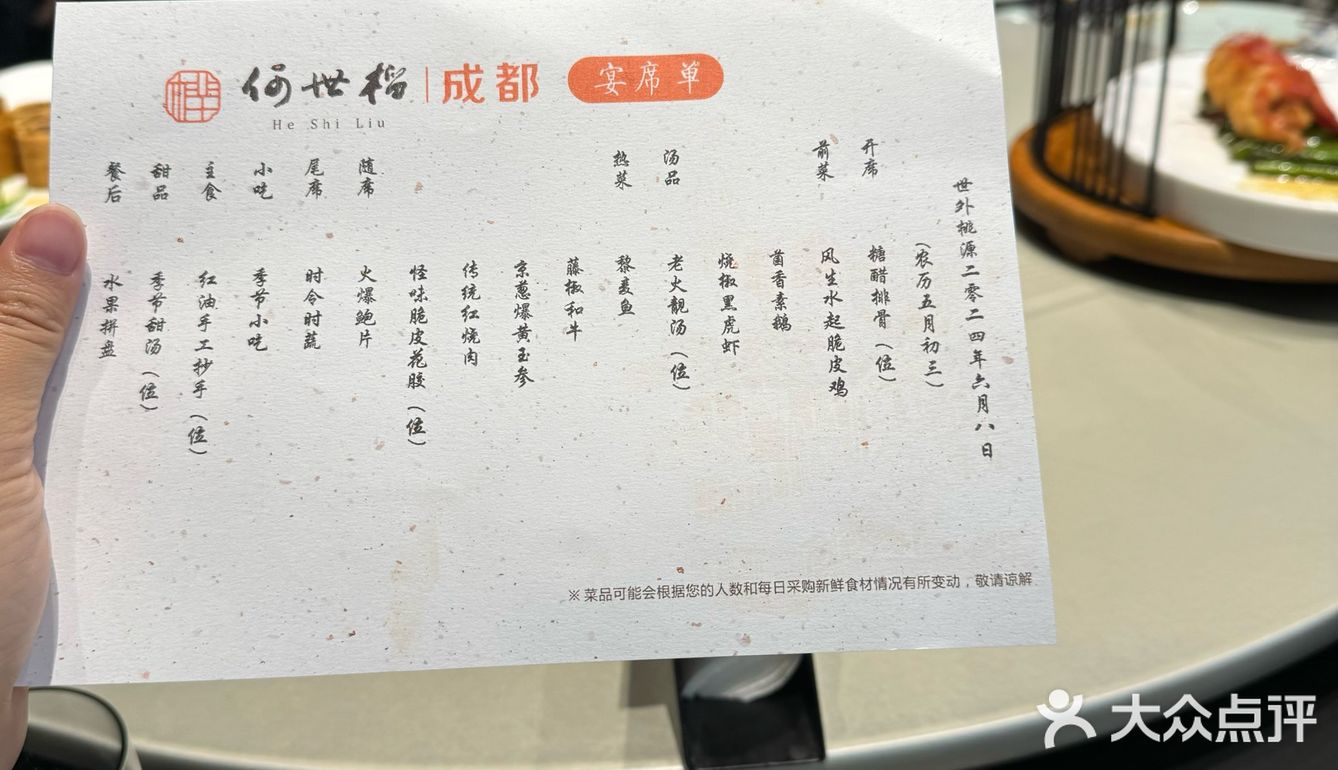 何世榴
He Shi Liu
成都
宴席单
世外桃源二零二四年六月八日
(农历五月初三)
开席
糖醋排骨(位)
前菜
风生水起脆皮鸡
茴香素鹅
烧椒黑虎虾
汤品
老火靓汤(位)
热菜
黎麦鱼
藤椒和牛
京葱爆黄玉参
传统红烧肉
怪味脆皮花胶(位)
随席
火爆鲍片
尾席
时令时蔬
小吃
季节小吃
主食
红油手工抄手(位)
甜品
季节甜汤(位)
餐后
水果拼盘
※菜品可能会根据您的人数和每日采购新鲜食材情况有所变动,敬请谅解
大众点评